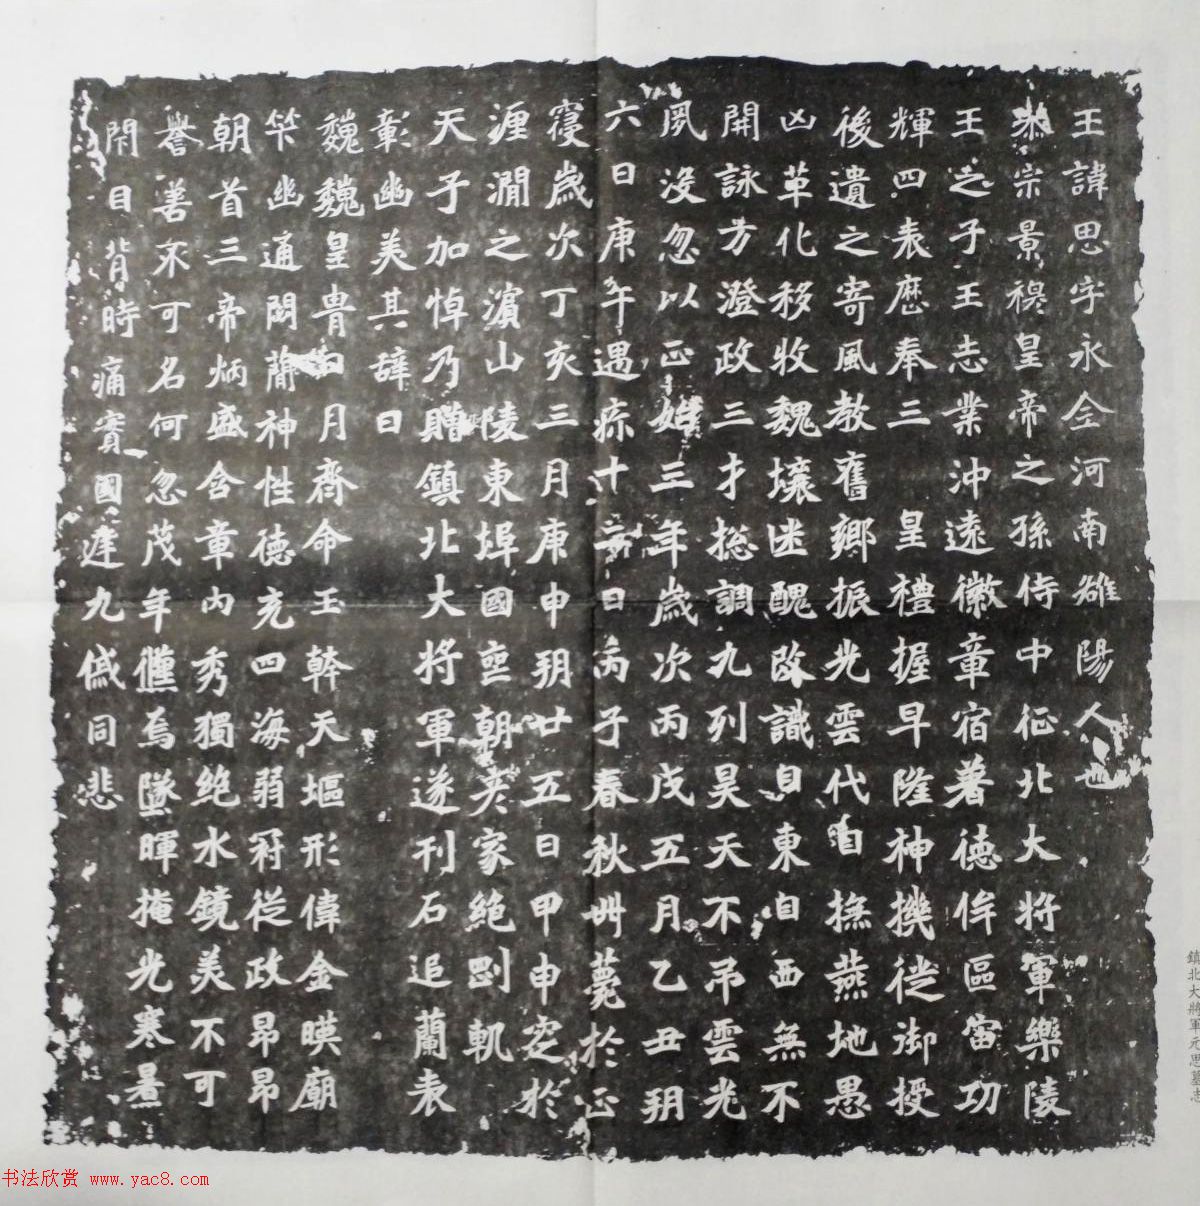 王諱思字永全河南雒陽人也
恭宗景穆皇帝之孫侍中征北大將軍樂陵
王之子王志業沖遠徽章宿著德侔區宙功
輝四表歷奉三皇禮握早隆神機徙御擾
後遺之寄風教舊鄉振光雲代自撫燕地愚
凶革化移牧魏壤迷醜改識自東自西無不
開詠方澄政三才揔調九列昊天不弔雲光
夙沒忽以正始三年歲次丙戌五月乙丑朔
六日庚午遇疹十二日丙子春秋卌薨於正
寢歲次丁亥三月庚申朔廿五日甲申窆於
瀍澗之濱山陵東埠國寮朝
天子加悼乃贈鎮北大將軍遂刊石追蘭表
彰幽美其辭曰
魏魏皇胄日月齊命玉幹天堀形偉金暎廟
竿幽通閟蕳神性德充四海弱冠從政昂昂
朝首三帝炳盛含章內秀獨絶水鏡美不可
譽善不可名何忽茂年儵焉墜暉掩光寒晷
閇目背時痛實國遑九慼同悲
鎮北大將軍元思墓志
书法欣赏 www.yac8.com